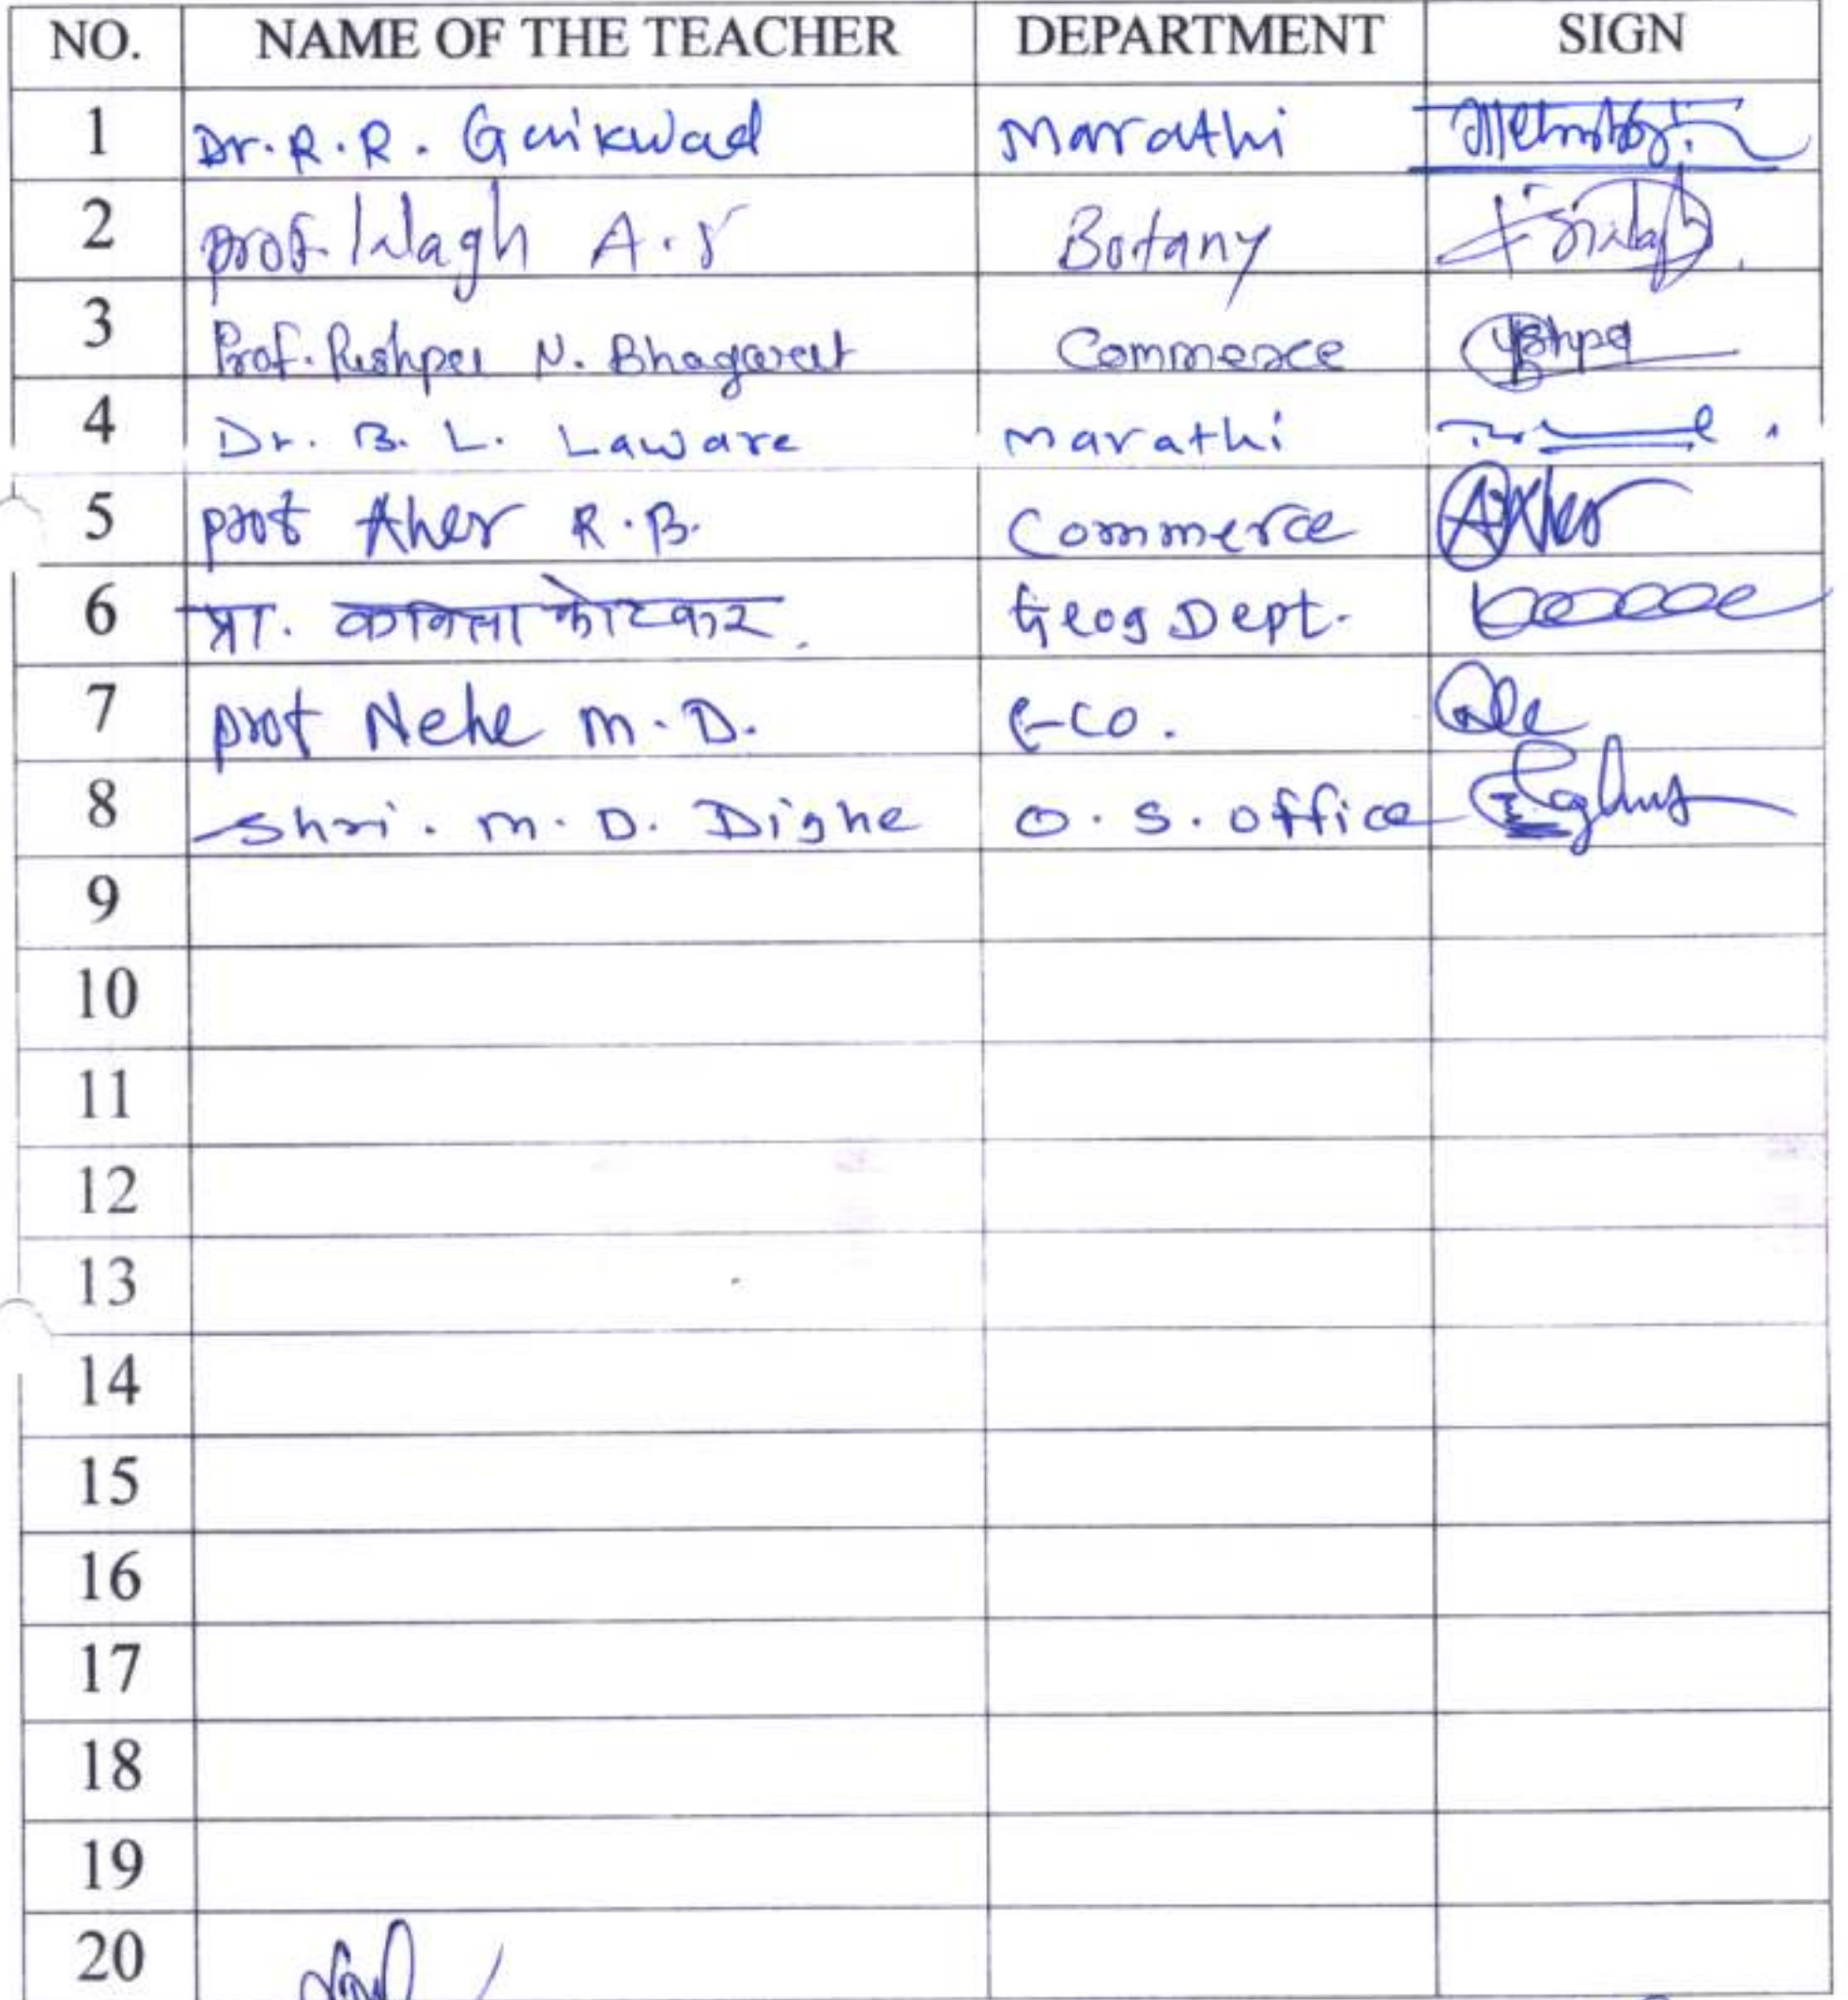 NO. NAME OF THE TEACHER DEPARTMENT SIGN
1 Dr. R. R. Gaikwad Marathi
2 prof. Wagh A. S Botany
3 Prof. Pushpa N. Bhagwat Commerce
4 Dr. B. L. Laware Marathi
5 prof Aher R. B. Commerce
6 प्रा. कविता कोटकर. Geog Dept.
7 prof Nehe M. D. Eco.
8 Shri. M. D. Dighe O. S. office
9
10
11
12
13
14
15
16
17
18
19
20